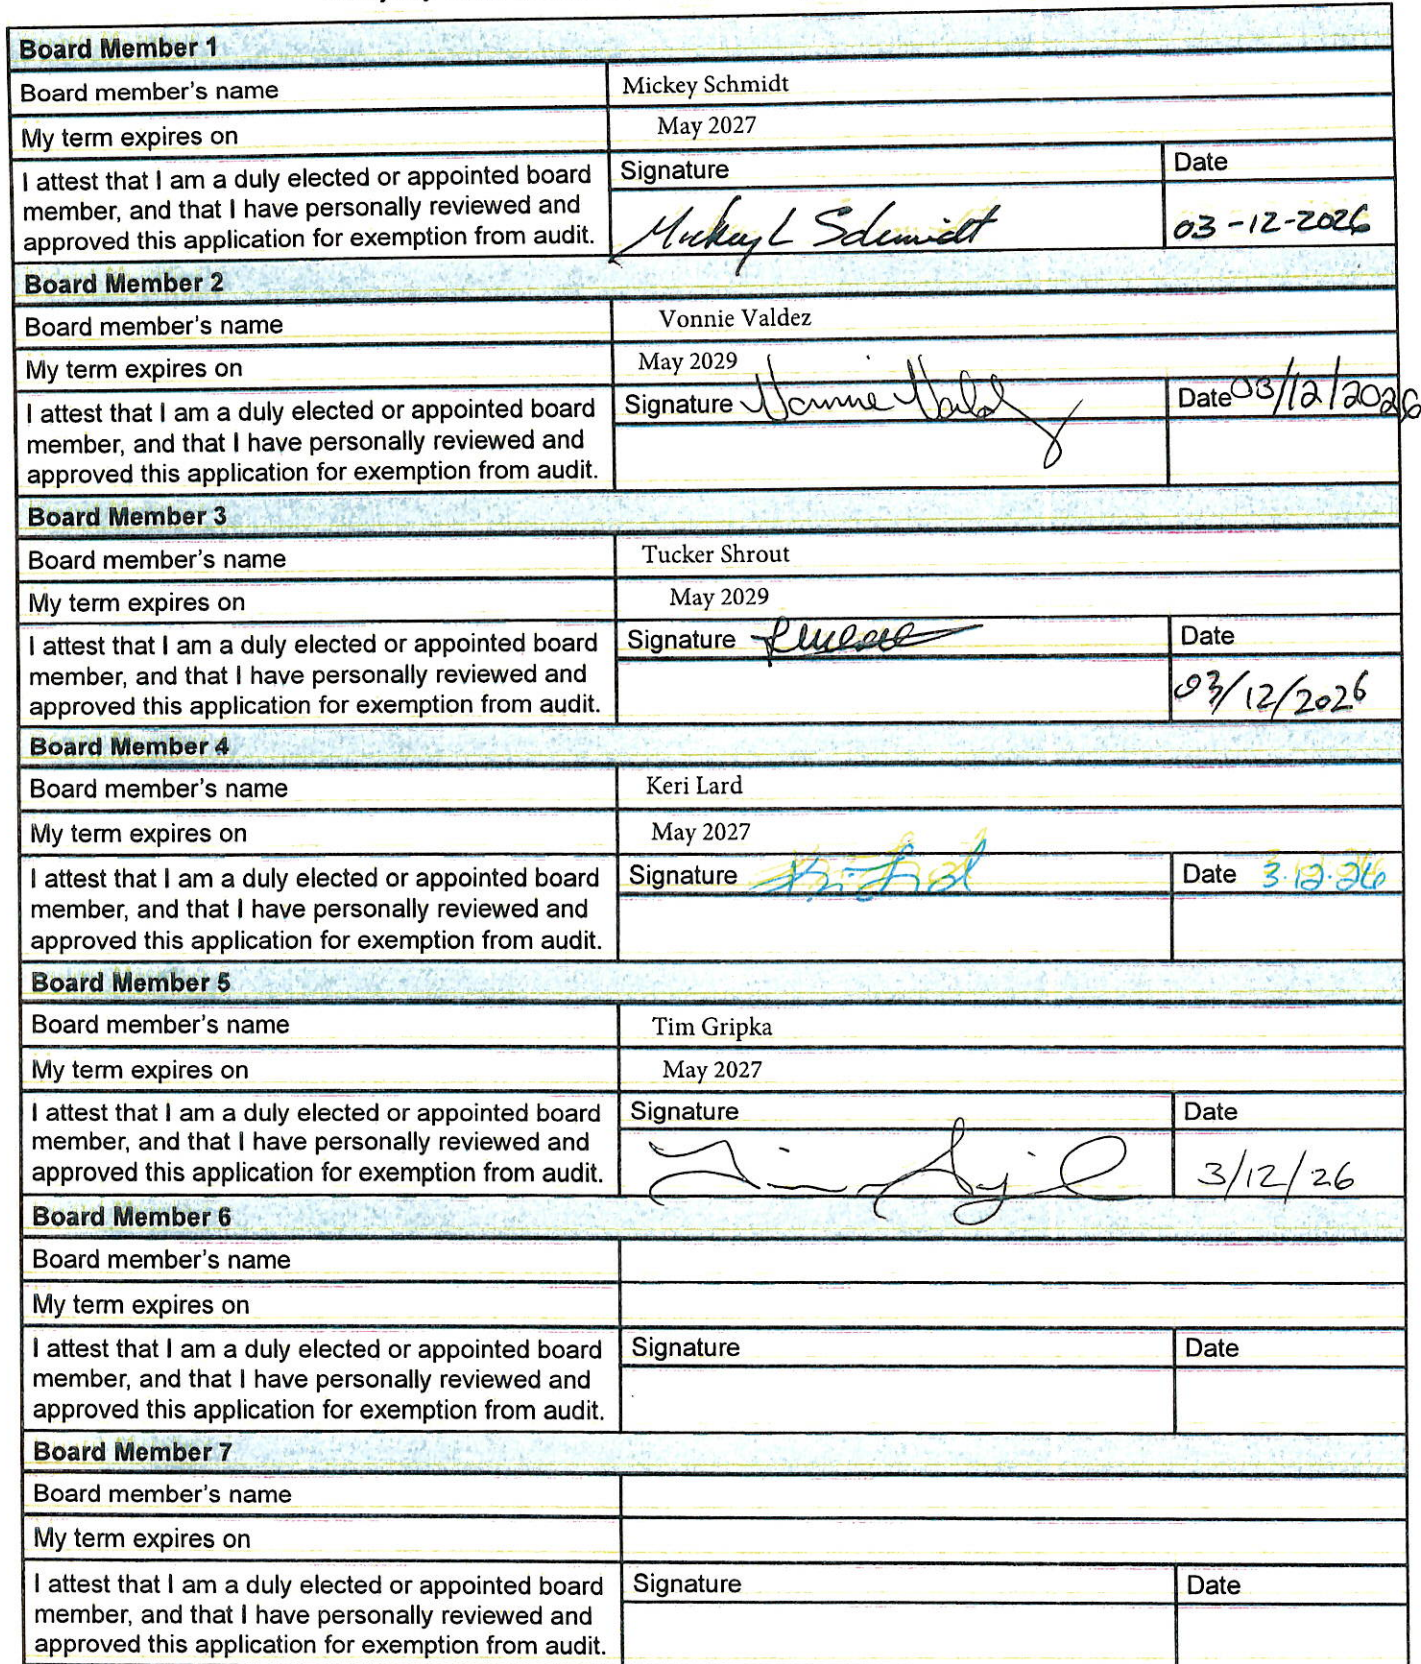 Board Member 1
Board member's name Mickey Schmidt
My term expires on May 2027
I attest that I am a duly elected or appointed board
member, and that I have personally reviewed and
approved this application for exemption from audit.
Signature Date
Mickey L Schmidt 03-12-2026
Board Member 2
Board member's name Vonnie Valdez
My term expires on May 2029
I attest that I am a duly elected or appointed board
member, and that I have personally reviewed and
approved this application for exemption from audit.
Signature Vonnie Valdez Date 03/12/2026
Board Member 3
Board member's name Tucker Shrout
My term expires on May 2029
I attest that I am a duly elected or appointed board
member, and that I have personally reviewed and
approved this application for exemption from audit.
Signature Date
03/12/2026
Board Member 4
Board member's name Keri Lard
My term expires on May 2027
I attest that I am a duly elected or appointed board
member, and that I have personally reviewed and
approved this application for exemption from audit.
Signature Date 3.12.26
Board Member 5
Board member's name Tim Gripka
My term expires on May 2027
I attest that I am a duly elected or appointed board
member, and that I have personally reviewed and
approved this application for exemption from audit.
Signature Date
3/12/26
Board Member 6
Board member's name
My term expires on
I attest that I am a duly elected or appointed board
member, and that I have personally reviewed and
approved this application for exemption from audit.
Signature Date
Board Member 7
Board member's name
My term expires on
I attest that I am a duly elected or appointed board
member, and that I have personally reviewed and
approved this application for exemption from audit.
Signature Date